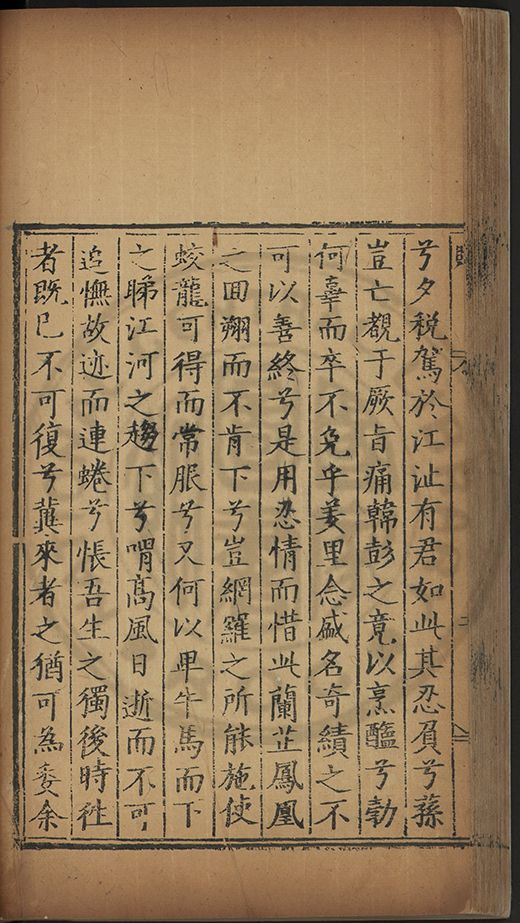 兮夕稅駕於江沚有君如此其忍負兮蓀
豈亡覩于厥旨痛韓彭之竟以烹醢兮勃
何辜而卒不免乎羑里念盛名奇績之不
可以善終兮是用忍情而惜此蘭芷鳳凰
之回翔而不肯下兮豈網羅之所能施使
蛟龍可得而常服兮又何以卑牛馬而下
之睇江河之趨下兮喟高風日逝而不可
追憮故迹而連蜷兮悵吾生之獨後時徃
者既已不可復兮冀來者之猶可為委余